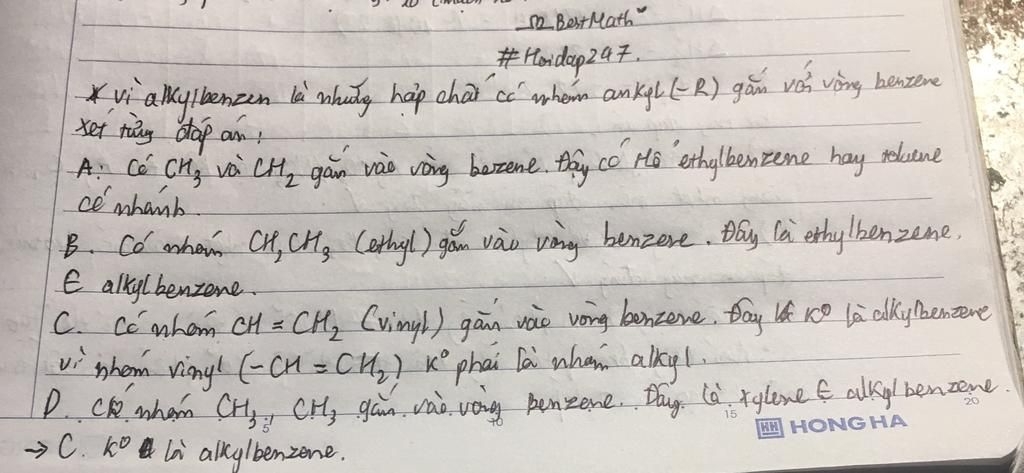 Ω BestMath
#Hoidap247.
* Vì alkylbenzen là những hợp chất có nhóm ankyl (-R) gắn với vòng benzene
xét từng đáp án:
A: Có CH3 và CH2 gắn vào vòng bezene. Đây có thể ethylbenzene hay toluene
có nhánh.
B. Có nhóm CH2CH3 (ethyl) gắn vào vòng benzene. Đây là ethylbenzene.
∈ alkylbenzene.
C. Có nhóm CH = CH2 (vinyl) gắn vào vòng benzene. Đây K° là alkylbenzene
vì nhóm vinyl (-CH = CH2) K° phải là nhóm alkyl.
D. Có nhóm CH3, CH3 gắn vào vòng benzene. Đây là xylene ∈ alkylbenzene.
5 10 15 20
HH HONG HA
→ C. K° là alkylbenzene.